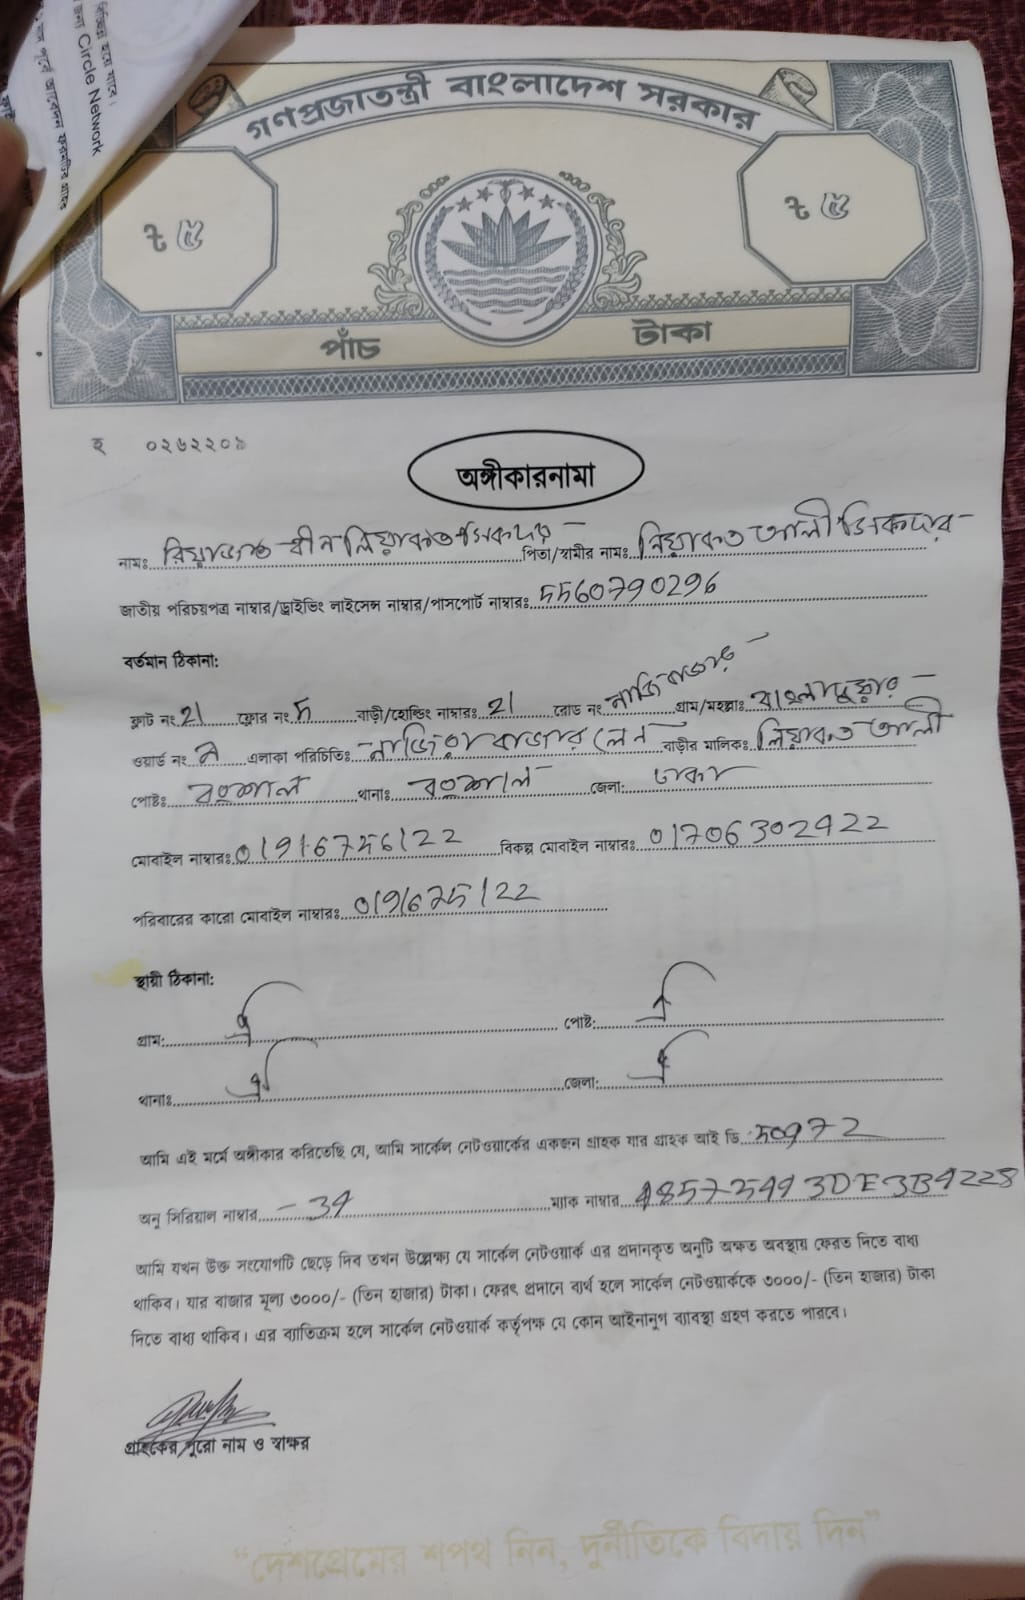 বিচ্ছিন্ন হয়ে যাবে।
জন্য Circle Network
পূর্বে আবেদন ফরমটির গ্রাহক
গণপ্রজাতন্ত্রী বাংলাদেশ সরকার
৳ ৫ ৳ ৫
পাঁচ টাকা
হ ০২৬২২০৯
অঙ্গীকারনামা
নামঃ বীন লিয়াকত সিকদার পিতা/স্বামীর নামঃ লিয়াকত আলী সিকদার
জাতীয় পরিচয়পত্র নাম্বার/ড্রাইভিং লাইসেন্স নাম্বার/পাসপোর্ট নাম্বারঃ 5560790296
বর্তমান ঠিকানা:
ফ্লাট নং 21 ফ্লোর নং 5 বাড়ী/হোল্ডিং নাম্বারঃ 21 রোড নং গ্রাম/মহল্লাঃ বাংলাদুয়ার
ওয়ার্ড নং এলাকা পরিচিতিঃ নাজিরা বাজার লেন বাড়ীর মালিকঃ লিয়াকত আলী
পোষ্টঃ বংশাল থানাঃ বংশাল জেলা: ঢাকা
মোবাইল নাম্বারঃ বিকল্প মোবাইল নাম্বারঃ 01706302922
পরিবারের কারো মোবাইল নাম্বারঃ
স্থায়ী ঠিকানা:
গ্রাম: ঐ পোষ্ট: ঐ
থানাঃ ঐ জেলা: ঐ
আমি এই মর্মে অঙ্গীকার করিতেছি যে, আমি সার্কেল নেটওয়ার্কের একজন গ্রাহক যার গ্রাহক আই ডি
অনু সিরিয়াল নাম্বার - 34 ম্যাক নাম্বার
আমি যখন উক্ত সংযোগটি ছেড়ে দিব তখন উল্লেখ্য যে সার্কেল নেটওয়ার্ক এর প্রদানকৃত অনুটি অক্ষত অবস্থায় ফেরত দিতে বাধ্য
থাকিব। যার বাজার মূল্য ৩০০০/- (তিন হাজার) টাকা। ফেরৎ প্রদানে ব্যর্থ হলে সার্কেল নেটওয়ার্ককে ৩০০০/- (তিন হাজার) টাকা
দিতে বাধ্য থাকিব। এর ব্যাতিক্রম হলে সার্কেল নেটওয়ার্ক কর্তৃপক্ষ যে কোন আইনানুগ ব্যাবস্থা গ্রহণ করতে পারবে।
গ্রাহকের পুরো নাম ও স্বাক্ষর
“দেশপ্রেমের শপথ নিন, দুর্নীতিকে বিদায় দিন”